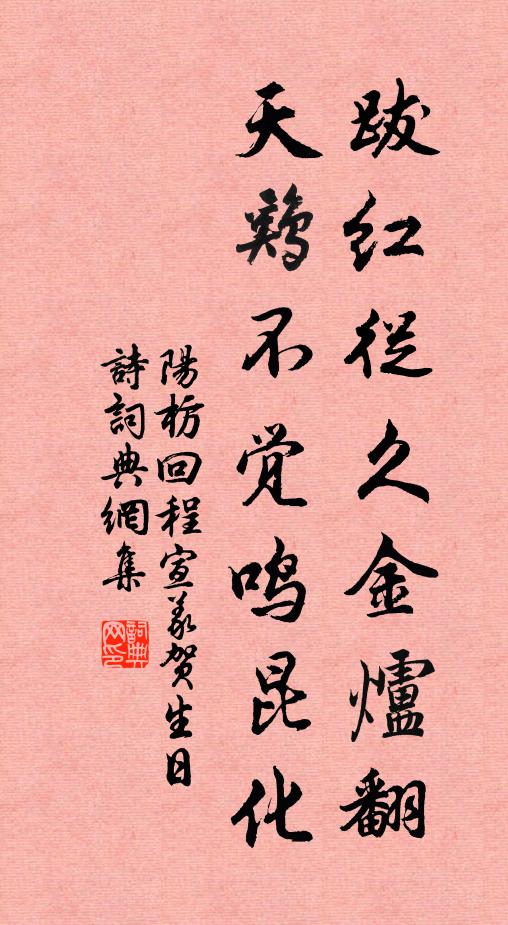 跋红從久金爐翻
天鷄不觉鸣昆化
陽枋回程宣義贺生日
詩詞典網集
詞典网印